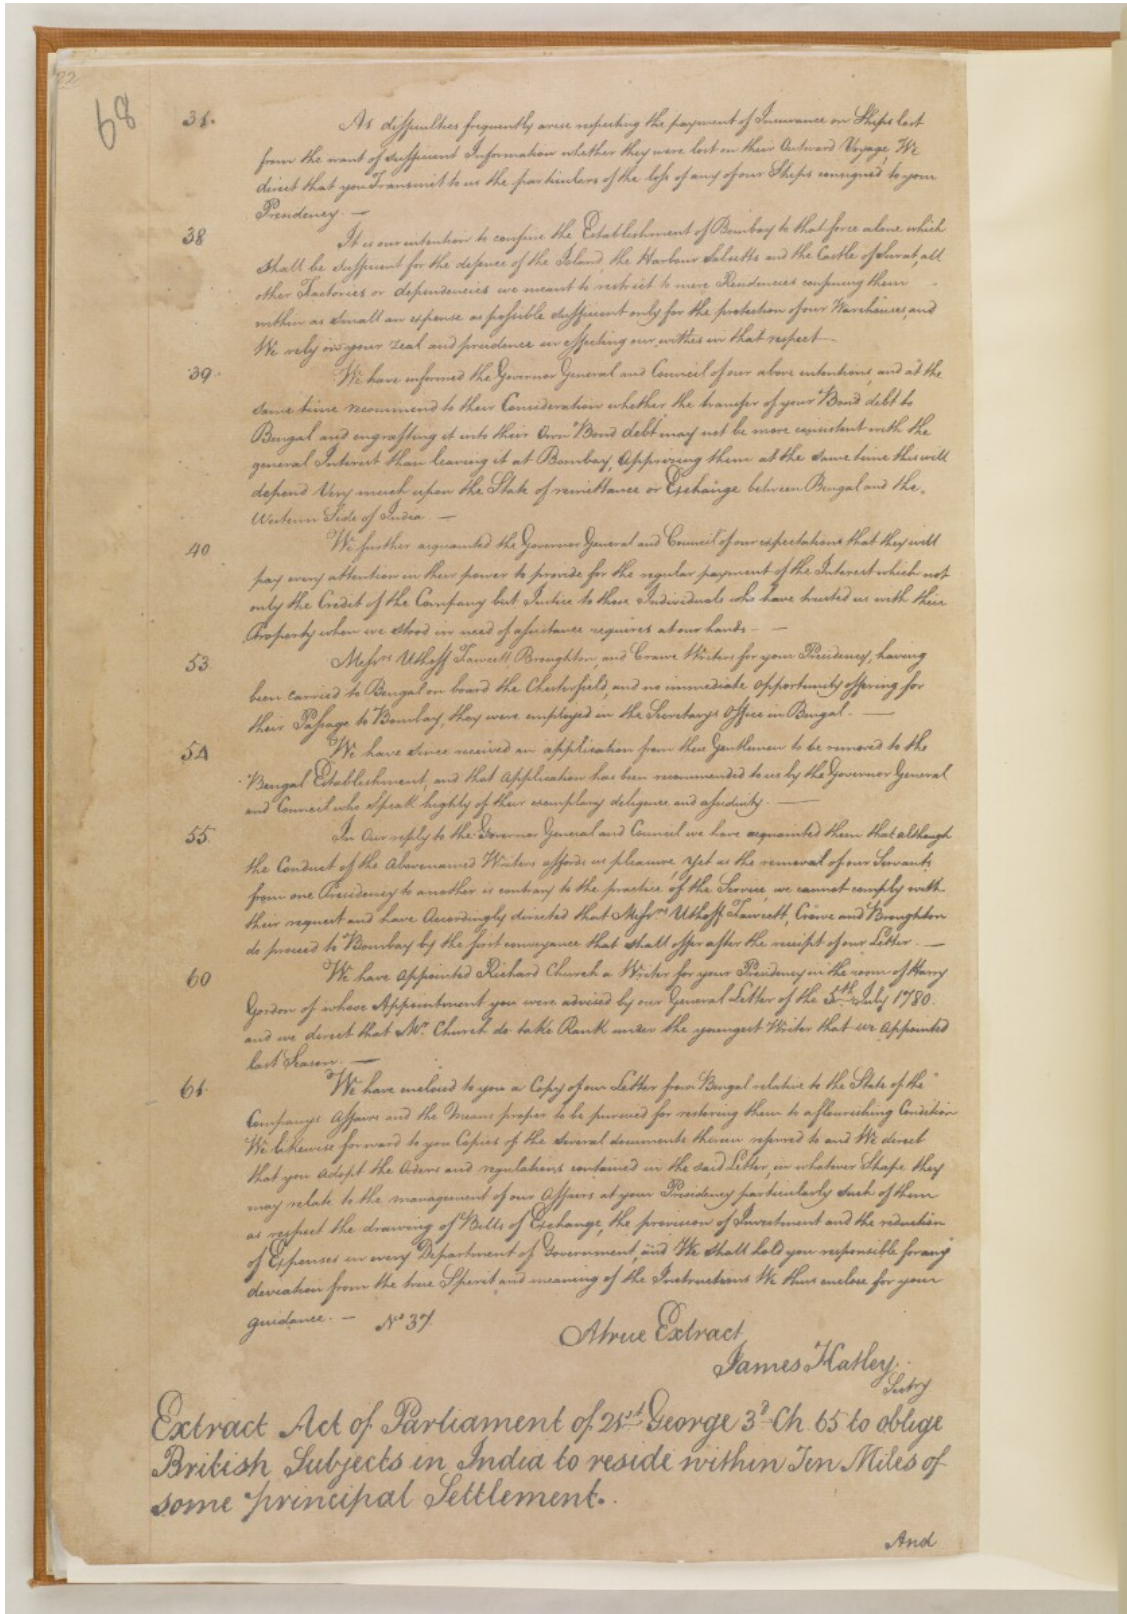 22
68
31. As difficulties frequently arise respecting the payment of Insurance on Ships lost
from the want of sufficient Information whether they were lost on their Outward Voyage, We
direct that you Transmit to us the particulars of the loss of any of our Ships consigned to your
Presidency. —
38 It is our intention to confine the Establishment of Bombay to that force alone which
shall be sufficient for the defence of the Island, the Harbour Salsette and the Castle of Surat, all
other Factories or dependencies we meant to restrict to mere Residencies confining them
within as small an expense as possible sufficient only for the protection of our Warehouses, and
We rely on your zeal and prudence in effecting our wishes in that respect —
39. We have informed the Governor General and Council of our above intentions, and at the
same time recommend to their Consideration whether the transfer of your Bond debt to
Bengal and engrafting it into their Own Bond debt may not be more consistent with the
general Interest than leaving it at Bombay, Apprizing them at the same time this will
depend Very much upon the State of remittance or Exchange between Bengal and the
Western Side of India. —
40 We further acquainted the Governor General and Council of our expectations that they will
pay every attention in their power to provide for the regular payment of the Interest which not
only the Credit of the Company but Justice to those Individuals who have trusted us with their
Property when we stood in need of assistance requires at our hands — —
53 Messrs Uthoff Fawcett Broughton, and Crowe Writers for your Presidency, having
been carried to Bengal on board the Chesterfield, and no immediate opportunity offering for
their Passage to Bombay, they were employed in the Secretarys Office in Bengal. —
54 We have since received an application from these Gentlemen to be removed to the
Bengal Establishment, and that Application has been recommended to us by the Governor General
and Council who Speak highly of their exemplary deligence and assiduity. —
55 In Our reply to the Governor General and Council we have acquainted them that although
the Conduct of the Abovenamed Writers affords us pleasure, yet as the removal of our Servants
from one Presidency to another is contrary to the practice of the Service, we cannot comply with
their request and have Accordingly directed that Messrs Uthoff Fawcett, Crowe and Broughton
do proceed to Bombay by the first conveyance that shall offer after the receipt of our Letter. —
60 We have appointed Richard Church a Writer for your Presidency in the room of Harry
Gordon of whose Appointment you were advised by our General Letter of the 5th July 1780.
and we direct that Mr. Church do take Rank under the youngest Writer that we appointed
last Season. —
61. We have enclosed to you a Copy of our Letter from Bengal relative to the State of the
Companys Affairs and the Means proper to be pursued for restoring them to a flourishing Condition
We likewise forward to you Copies of the several documents therein referred to and We direct
that you adopt the Orders and regulations contained in the said Letter, in whatever Shape they
may relate to the management of our Affairs at your Presidency particularly such of them
as respect the drawing of Bills of Exchange, the provision of Investment and the reduction
of Expenses in every Department of Government, and We shall hold you responsible for any
deviation from the true Spirit and meaning of the Instructions We thus enclose for your
guidance. — No 37.
A true Extract
James Hatley.
Sectry
Extract Act of Parliament of 21st George 3d Ch. 65 to oblige
British Subjects in India to reside within Ten Miles of
some principal Settlement.
And